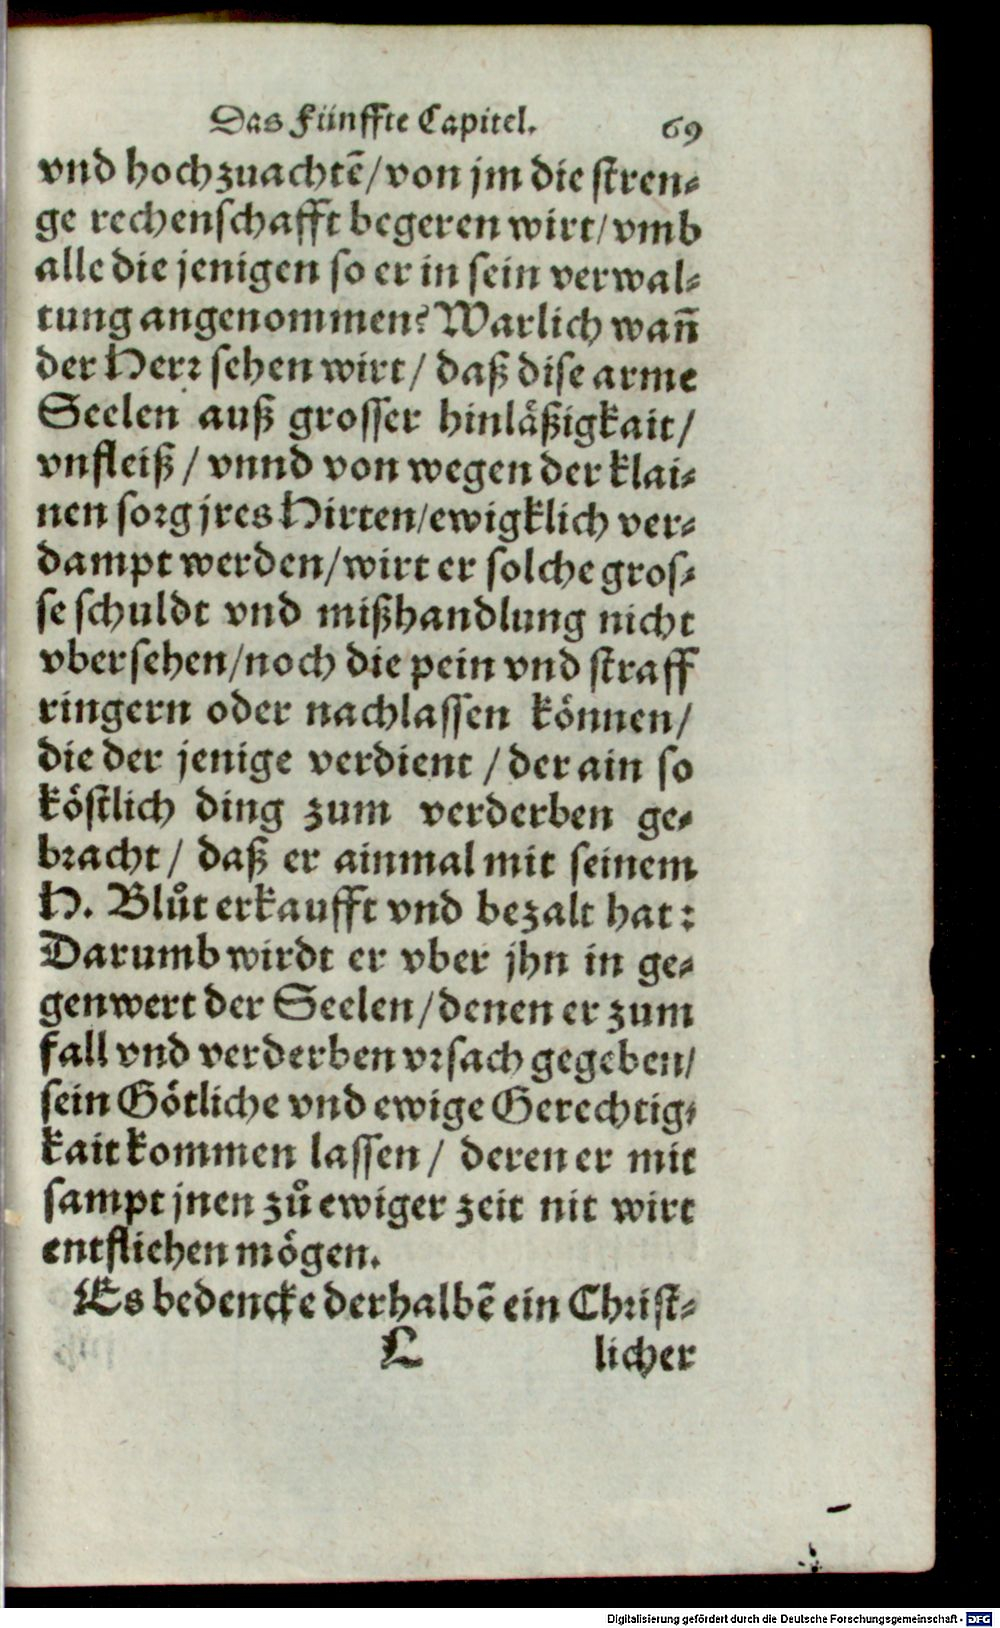 Das Fünffte Capitel. 69
vnd hochzuachtē/von jm die stren⸗
ge rechenschafft begeren wirt/vmb
alle die jenigen so er in sein verwal⸗
tung angenommen? Warlich wañ
der Herr sehen wirt/ daß dise arme
Seelen auß grosser hinläßigkait/
vnfleiß/ vnnd von wegen der klai⸗
nen sorg jres Hirten/ewigklich ver⸗
dampt werden/wirt er solche gros⸗
se schuldt vnd mißhandlung nicht
vbersehen/noch die pein vnd straff
ringern oder nachlassen können/
die der jenige verdient/ der ain so
köstlich ding zum verderben ge⸗
bracht/ daß er ainmal mit seinem
H. Blůt erkaufft vnd bezalt hat:
Darumb wirdt er vber jhn in ge⸗
genwert der Seelen/denen er zum
fall vnd verderben vrsach gegeben/
sein Götliche vnd ewige Gerechtig⸗
kait kommen lassen/ deren er mit
sampt jnen zů ewiger zeit nit wirt
entfliehen mögen.
Es bedencke derhalbē ein Christ⸗
L licher
Digitalisierung gefördert durch die Deutsche Forschungsgemeinschaft - DFG